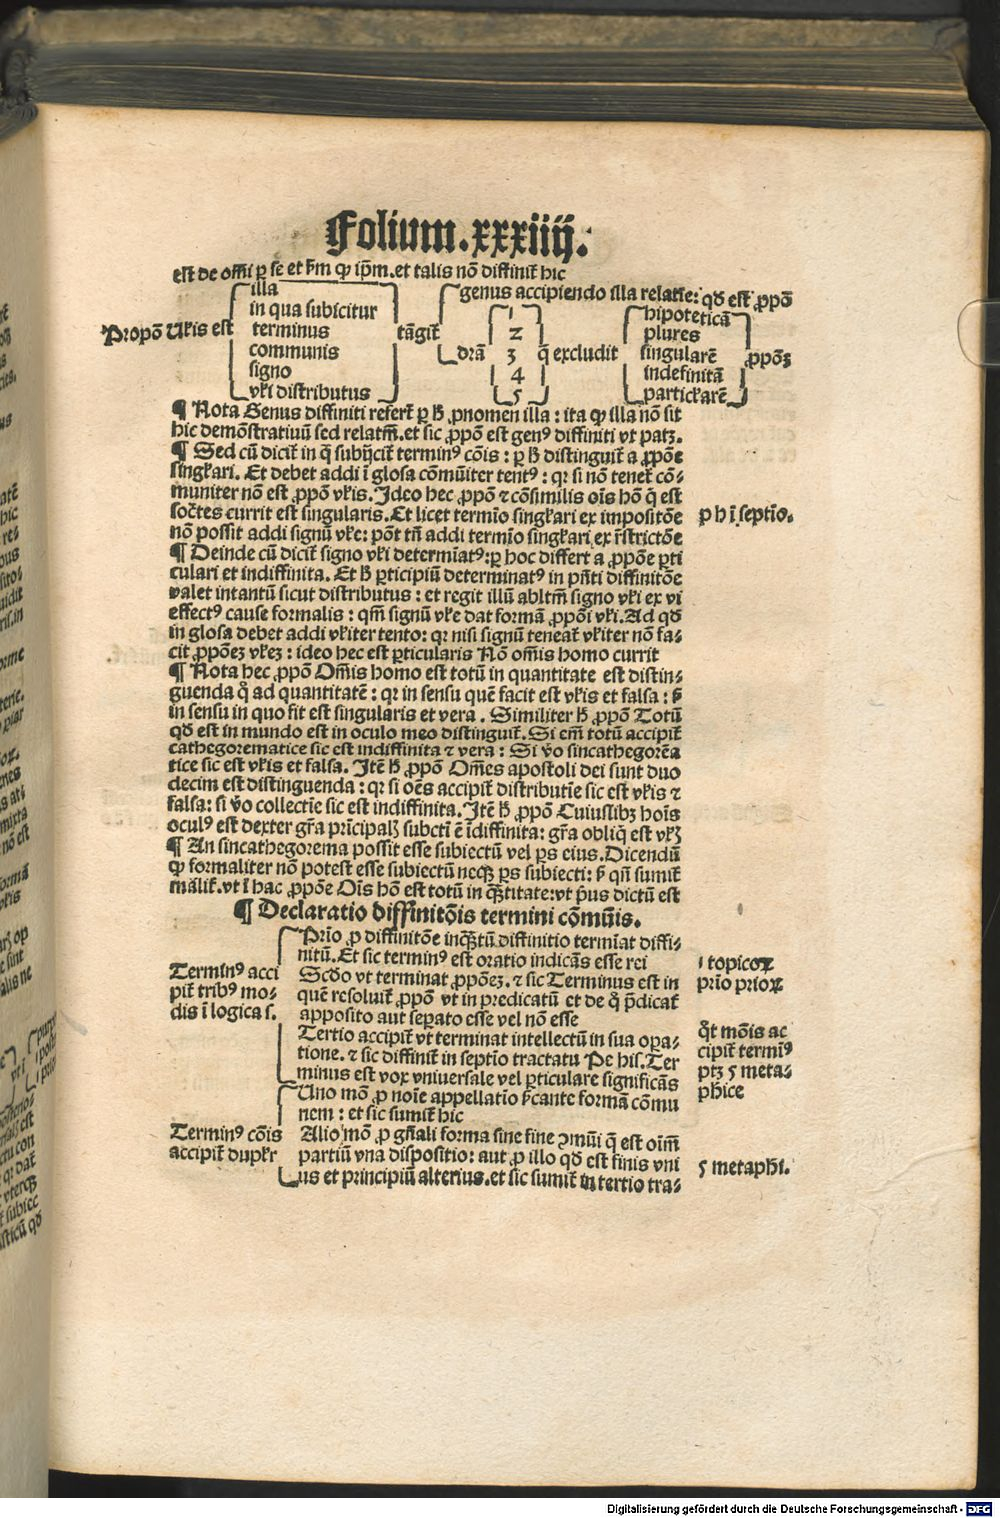 Folium.xxxiiij.
est de om̄i ꝑ se et ẜm ꝙ ip̄m.et talis nō diffinit̄ hic
Propō vƚis est
illa
in qua subicitur
terminus
communis
signo
vƚi distributus
tāgit̄
genus accipiendo illa relatīe: qđ est ꝓpō
drā̄
1
2
3
4
5
q̄ excludit
hipoteticā
plures
singularē
indefinitā
particƚarē
ꝓpōꝫ
¶ Nota Genus diffiniti refert̄ ꝑ ħ ꝓnomen illa : ita ꝙ illa nō sit
hic demōstratiuū sed relatm̄.et sic ꝓpō est genꝰ diffiniti vt patꝫ.
¶ Sed cū dicit̄ in q̄ subijcit̄ terminꝰ cōis : ꝑ ħ distinguit̄ a ꝓpōe
singƚari. Et debet addi ī glosa cōmūiter tentꝰ : qꝛ si nō tenet̄ cō⸗
muniter nō est ꝓpō vƚis. Ideo hec ꝓpō ⁊ cōsimilis oīs hō q̄ est
soctēs currit est singularis. Et licet termīo singƚari ex impositōe
nō possit addi signū vƚe: pōt tn̄ addi termīo singƚari ex r̄strictōe
ꝑ hī septīo.
¶ Deinde cū dicit̄ signo vƚi determīatꝰ:ꝑ hoc differt a ꝓpōe ꝑti
culari et indiffinita. Et ħ ꝑticipiū determinatꝰ in pn̄ti diffinitōe
valet intantū sicut distributus : et regit illū abltm̄ signo vƚi ex vi
effectꝰ cause formalis : qm̄ signū vƚe dat formā ꝓpōi vƚi. Ad qđ
in glosa debet addi vƚiter tento: qꝛ nisi signū teneat̄ vƚiter nō fa⸗
cit ꝓpōeꝫ vƚeꝫ : ideo hec est ꝑticularis Nō om̄is homo currit
¶ Nota hec ꝓpō Om̄is homo est totū in quantitate est distin⸗
guenda q̊ ad quantitatē : qꝛ in sensu quē facit est vƚis et falsa : ẜ
in sensu in quo fit est singularis et vera . Similiter ħ ꝓpō Totū
qđ est in mundo est in oculo meo distinguit̄. Si em̄ totū accipit̄
cathegorematice sic est indiffinita ⁊ vera : Si v̊o sincathegorēa
tice sic est vƚis et falsa. Itē ħ ꝓpō Om̄es apostoli dei sunt duo
decim est distinguenda : qꝛ si oēs accipit̄ distributīe sic est vƚis ⁊
falsa: si v̊o collectīe sic est indiffinita. Itē ħ ꝓpō Cuiuslibꝫ hoīs
oculꝰ est dexter gr̄a prīcipalꝭ subcti ē īdiffinita: gr̄a obliq̄ est vƚꝭ
¶ An sincathegorema possit esse subiectū vel ꝑs eius. Dicendū
ꝙ formaliter nō potest esse subiectū neqꝫ ꝑs subiecti: ẜ qn̄ sumit̄
mālit̄. vt ī hac ꝓpōe Oīs hō est totū in q̄titate: vt p̄us dictū est
¶ Declaratio diffinitōis termini cōmūis.
Terminꝰ acci
pit̄ tribꝰ mo⸗
dis ī logica s.
Prīo ꝓ diffinitōe inq̄tū diffinitio termīat diffi⸗
nitū. Et sic terminꝰ est oratio indicās esse rei
Scđo vt terminat ꝓpōeꝫ. ⁊ sic Terminus est in
quē resoluit̄ ꝓpō vt in predicatū et de q̊ p̄dicat̄
apposito aut seꝑato esse vel nō esse
Tertio accipit̄ vt terminat intellectū in sua oꝑa⸗
tione. ⁊ sic diffinit̄ in septīo tractatu Pe his. Ter
minus est vox vniuersale vel ꝑticulare significās
i topicoꝝ
prīo prioꝝ
q̊t mōis ac
cipit̄ termīꝰ
ptꝫ 5 meta⸗
phīce
Terminꝰ cōis
accipit̄ dupƚr
Uno mō ꝓ noīe appellatīo ẜcante formā cōmu
nem : et sic sumit̄ hic
Alio mō ꝓ gn̄ali forma sine fine ꝯmūi q̄ est oīm̄
partiū vna dispositio: aut ꝓ illo qđ est finis vni
us et principiū alterius.et sic sumit̄ in tertio tra⸗
5 metaphi.
Digitalisierung gefördert durch die Deutsche Forschungsgemeinschaft - DFG